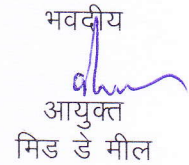 भवदीय
आयुक्त
मिड डे मील